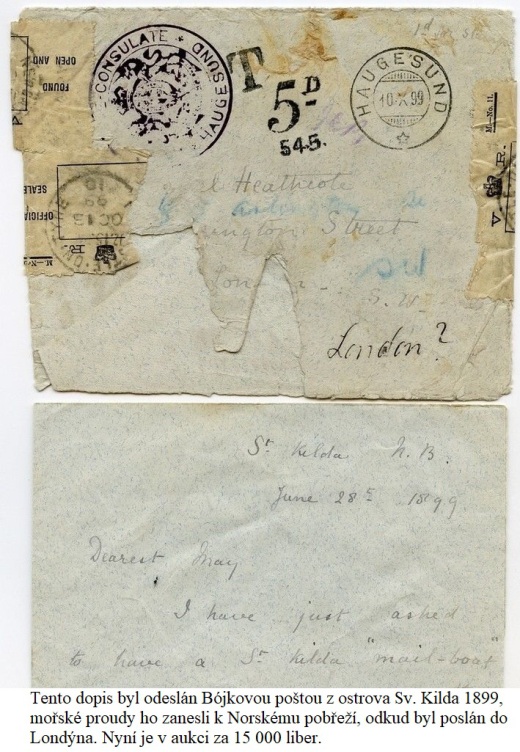 1st
FOUND
OPEN AND
OFFICIALLY
SEALED
M.—No
V R.
OC 13
99
CONSULATE
HAUGESUND
T
5D
54.5.
HAUGESUND
10·X·99
M.—No. 11.
V R.
Heathcote
Street
London
S.W.
W.C.
London?
St Kilda N.B.
June 28th 1899
Dearest May
I have just asked
to have a St Kilda "mail-boat"
Tento dopis byl odeslán Bójkovou poštou z ostrova Sv. Kilda 1899,
mořské proudy ho zanesli k Norskému pobřeží, odkud byl poslán do
Londýna. Nyní je v aukci za 15 000 liber.